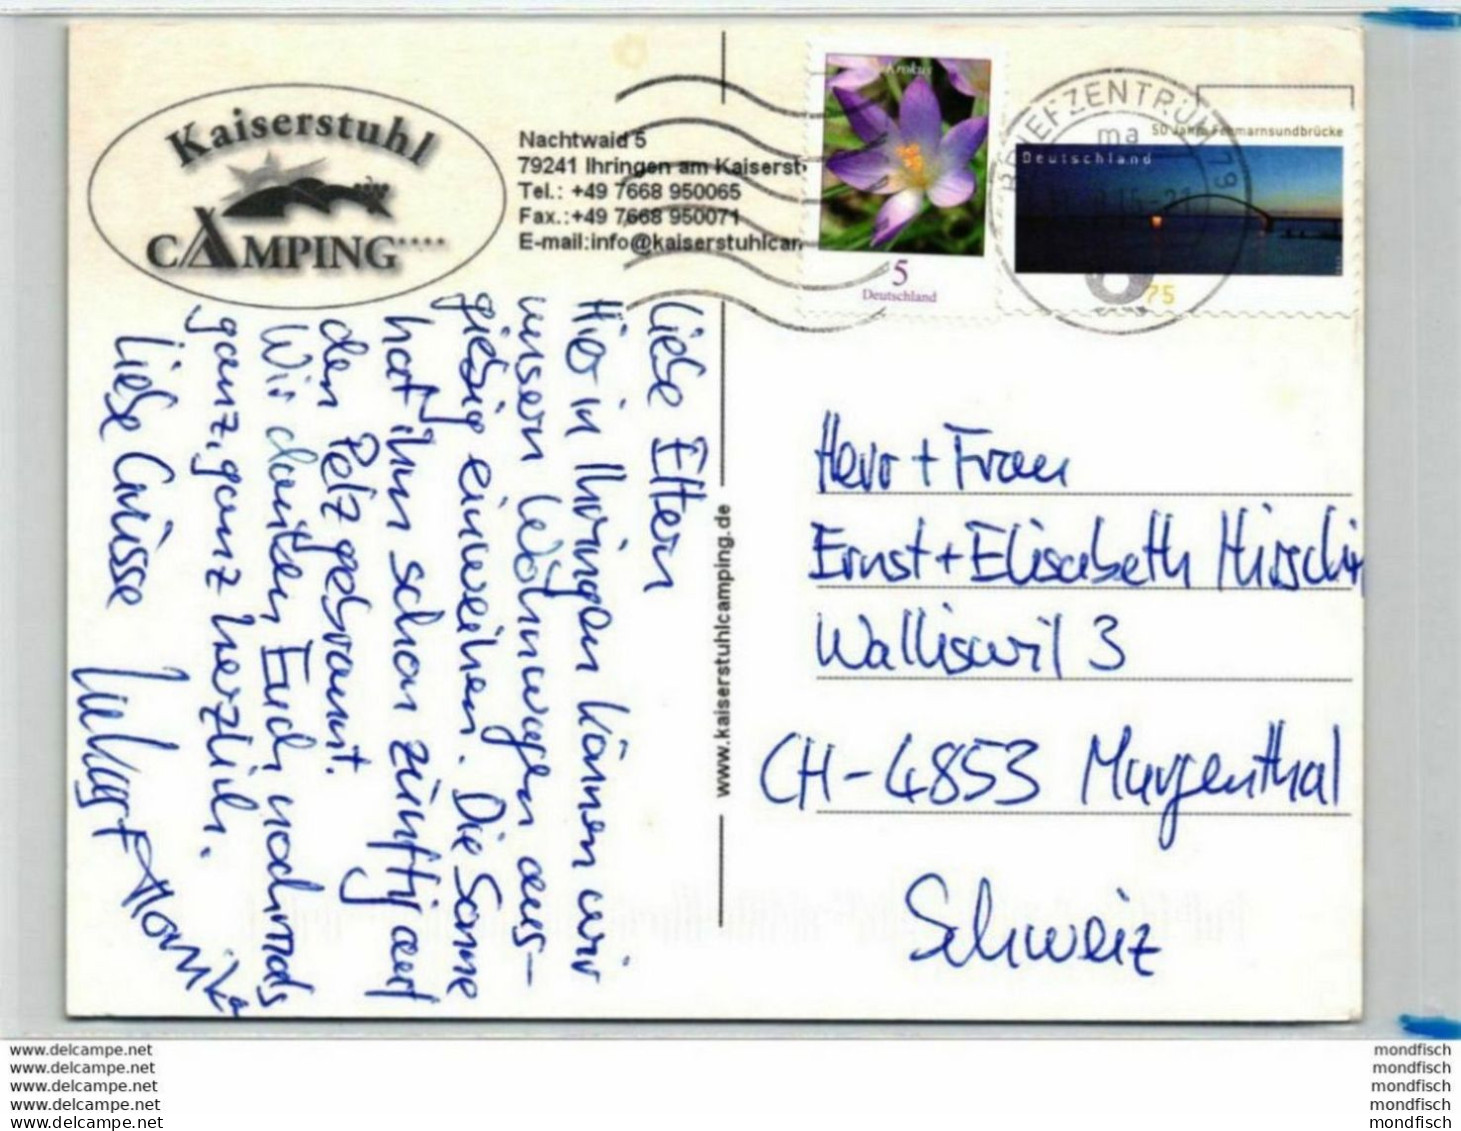 Kaiserstuhl
CAMPING****
Nachtwaid 5
79241 Ihringen am Kaiserst
Tel.: +49 7668 950065
Fax.:+49 7668 950071
E-mail:info@kaiserstuhlcam
Krokus
5
Deutschland
BRIEFZENTRUM 79
ma
50 Jahre Fehmarnsundbrücke
Deutschland
75
Liebe Eltern
Hier in Ihringen können wir
unsern Wohnwagen aus-
giebig einweihen. Die Sonne
hat ihm schon zünftig auf
den Pelz gebrannt.
Wir danken Euch nochmals
ganz, ganz herzlich.
Liebe Grüsse
Monika
www.kaiserstuhlcamping.de
Herr + Frau
Ernst + Elisabeth
Walliswil 3
CH-4853 Murgenthal
Schweiz
www.delcampe.net
www.delcampe.net
www.delcampe.net
www.delcampe.net
www.delcampe.net
mondfisch
mondfisch
mondfisch
mondfisch
mondfisch